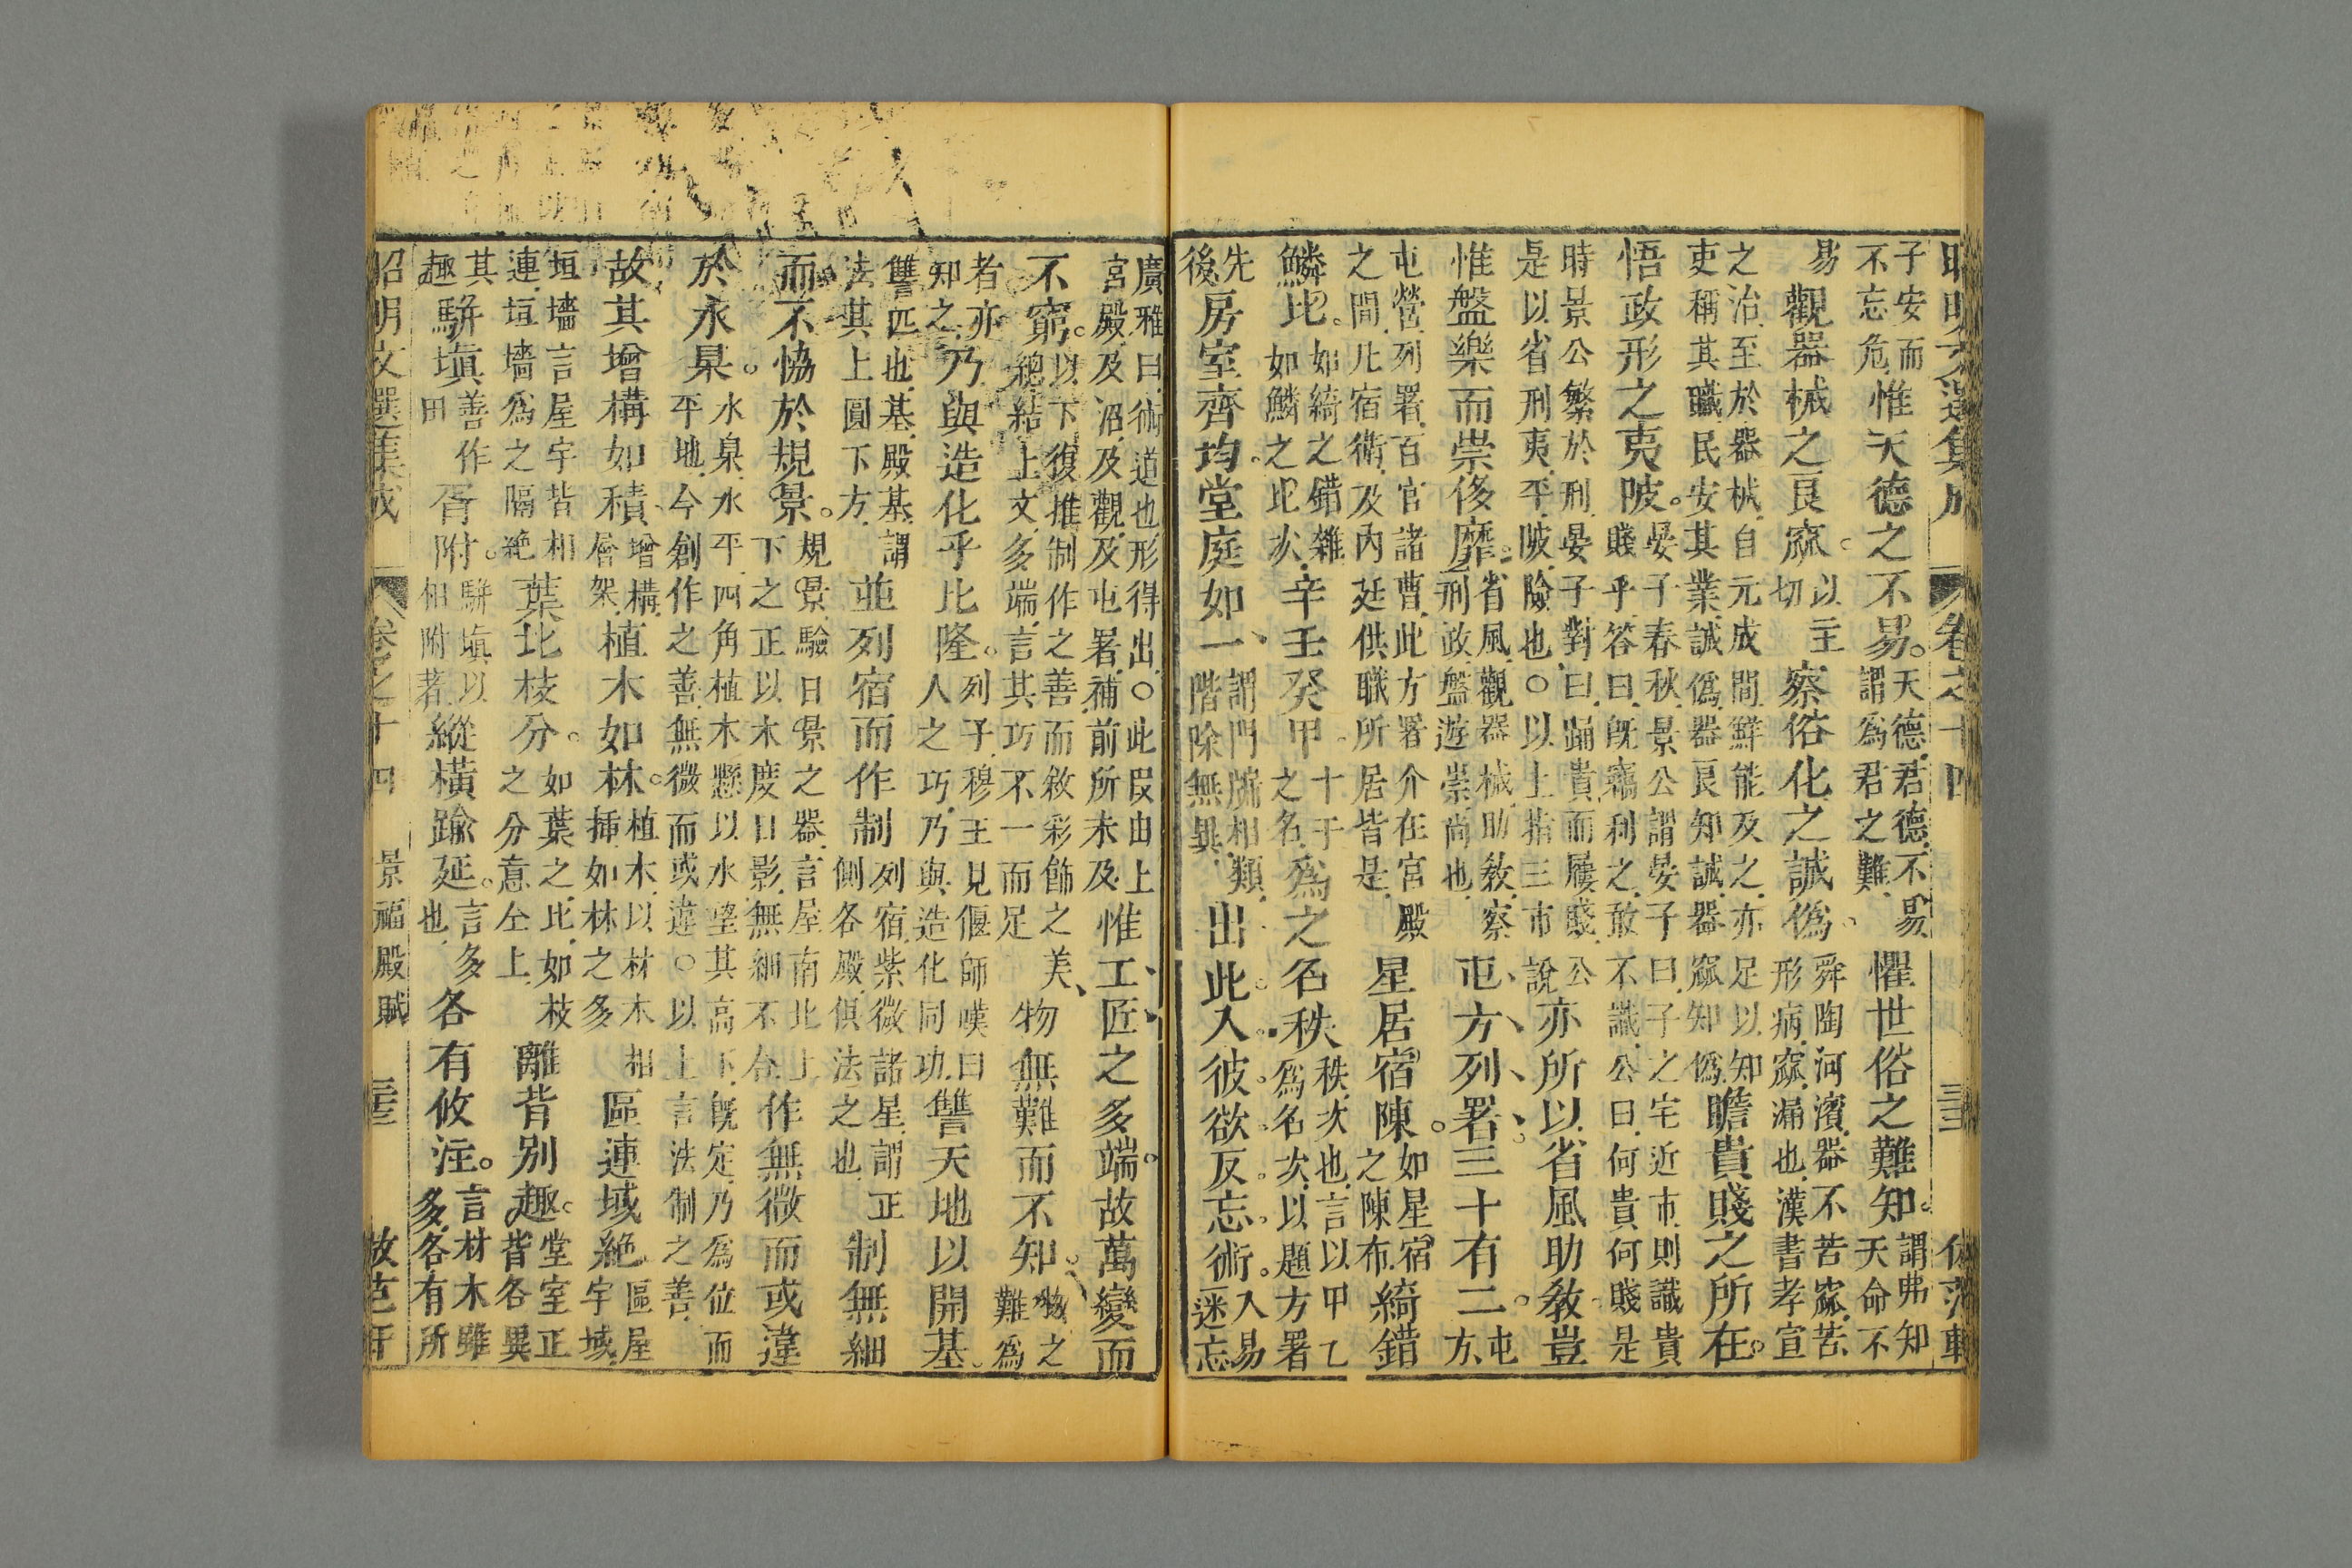 子安而不忘危惟天德之不易天德君德不易謂為君之難懼世俗之難知謂弗知天命不
易觀器械之良窳以主切察俗化之誠偽舜陶河濱器不苦窳苦形病窳漏也漢書孝宣
之治至於器械自元成間鮮能及之亦足以知吏稱其職民安其業誠偽器良知誠器窳知偽瞻貴賤之所在
悟政形之夷陂晏子春秋景公謂晏子曰子之宅近市則識貴賤乎答曰旣竊利之敢不識公曰何貴何賤是
時景公繁於刑晏子對曰踊貴而屨賤公是以省刑刑夷平陂險也〇以上指三市說亦所以省風助教豈
惟盤樂而崇侈靡省風觀器械助教察刑政盤遊崇尚也屯方列署三十有二屯方
屯營列署百官諸曹此方署介在宮殿之間凡宿衛及內廷供職所居皆是星居宿陳如星宿之陳布綺錯
鱗比如綺之錯雜如鱗之比次辛壬癸甲十干之名為之名秩秩次也言以甲乙為名次以題方署
先後房室齊均堂庭如一謂門牖相類階除無異出此入彼欲反忘術入易迷忘
廣雅曰術道也形得出〇此段由上宮殿及沼及觀及屯署補前所未及惟工匠之多端故萬變而
不窮以下復推制作之善而敘彩飾之美總結上文多端言其巧不一而足物無難而不知物之難為
者亦知之乃與造化乎比隆列子穆王見偃師嘆曰人之巧乃與造化同功讐天地以開基
讐匹也基殿基謂法其上圓下方並列宿而作制列宿紫微諸星謂正側各殿俱法之也制無細
而不恊於規景規景驗日景之器言屋南北上下之正以木度日影無細不合作無微而或違
於水臬水臬水平四角植木懸以水望其高下旣定乃為位而平地今創作之善無微而或違〇以上言法制之善
故其增構如積增構層架植木如林植木以材木相插如林之多區連域絶區屋宇域
垣墻言屋宇皆相連垣墻為之隔絶葉比枝分如葉之比如枝之分意仝上離背別趣堂室正皆各異
其趣駢塡善作田胥附駢塡以相附著縱橫踰延言多也各有攸注言材木雖多各有所
昭明文選集成 卷之十四 景福殿賦